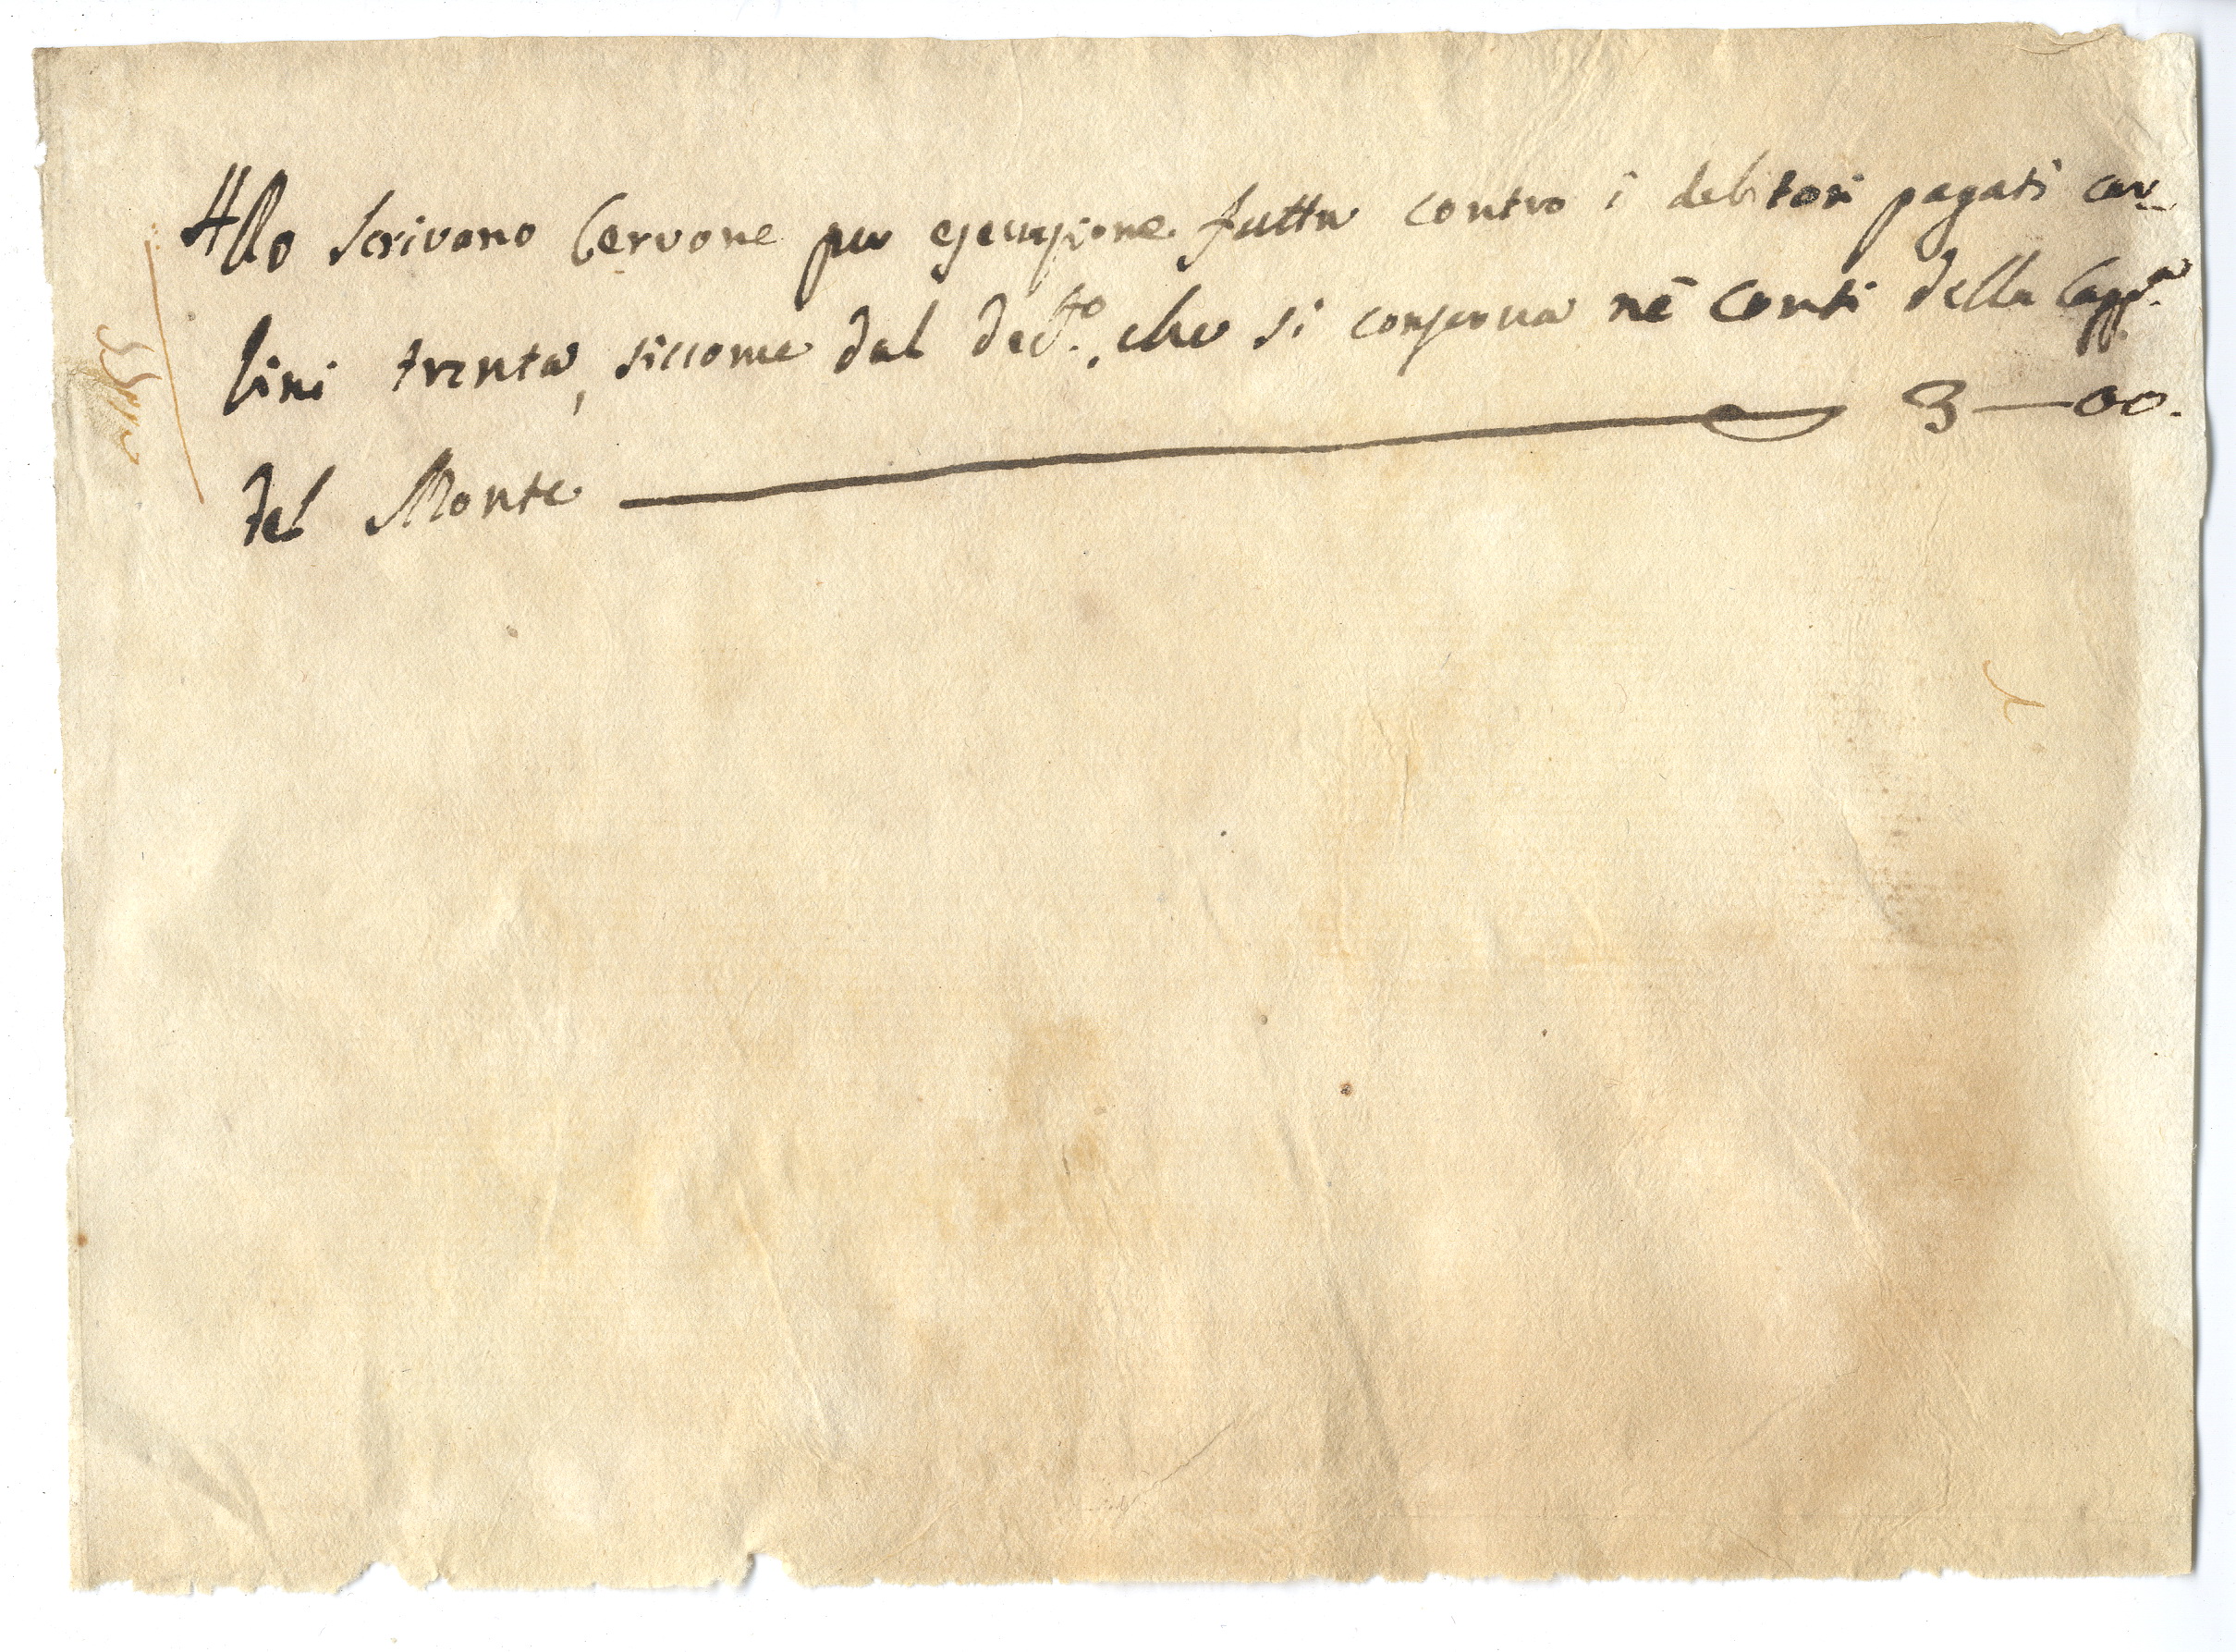 Allo Scrivano Cervone per esecuzione fatta contro i debitori pagati car_
lini trenta, siccome dal dec.to, che si conserva nē conti della Capp.a
del Monte 3—00.